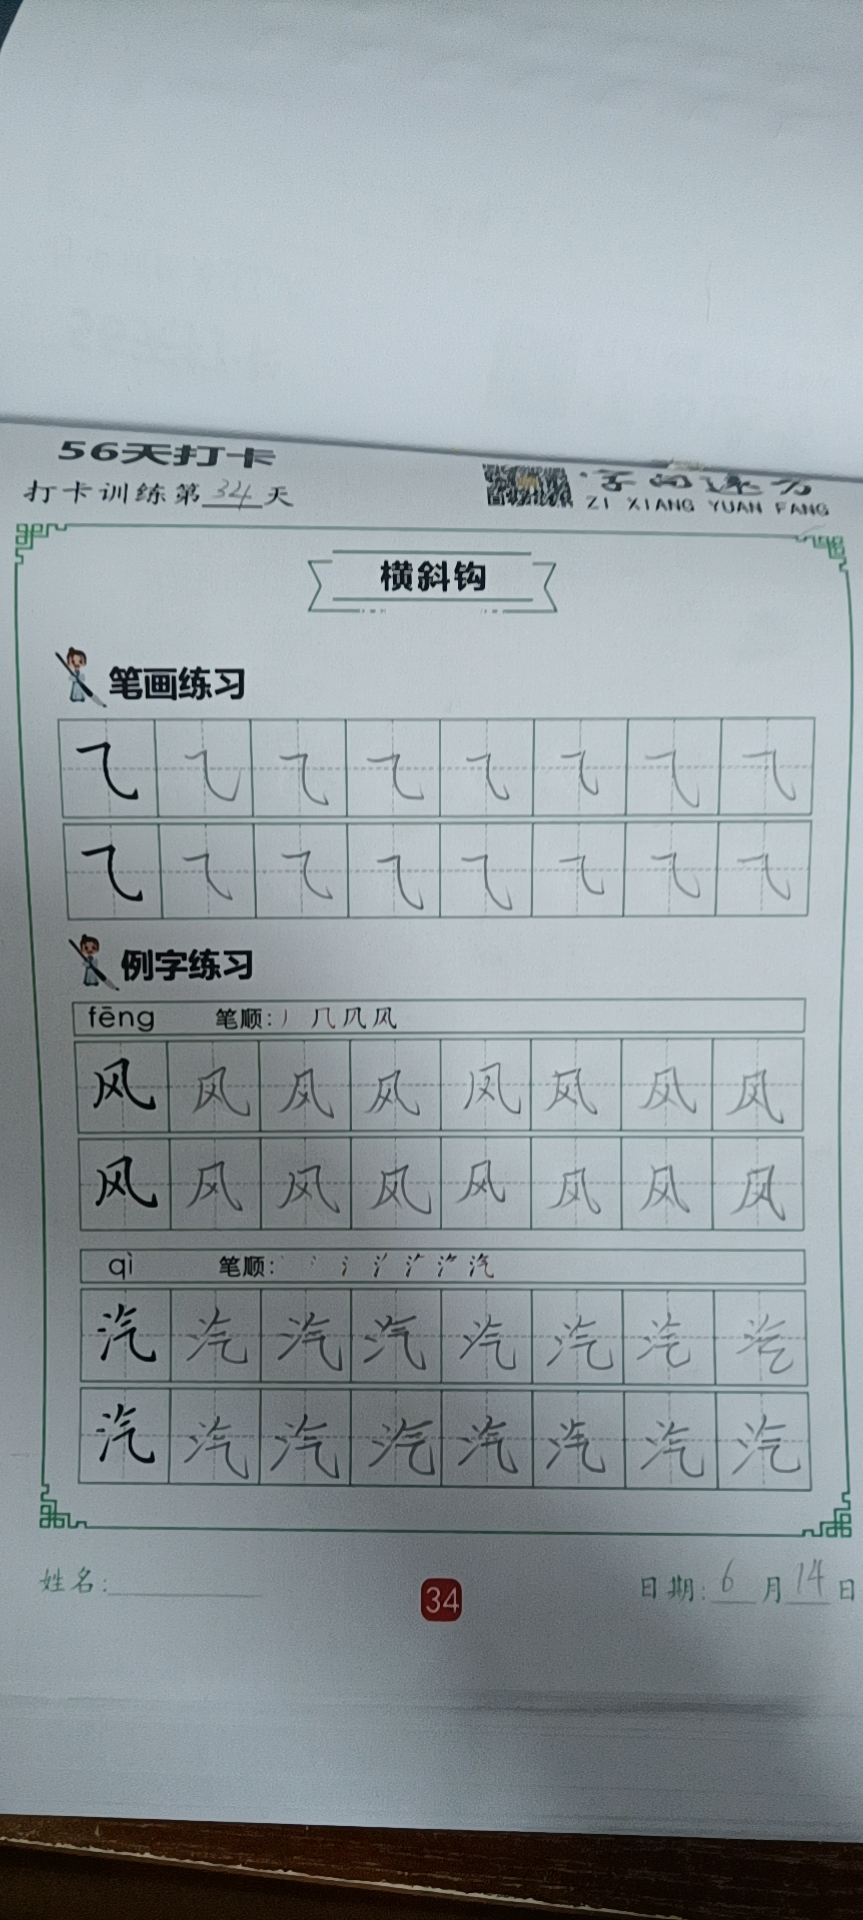 56天打卡
打卡训练第34天
ZI XIANG YUAN FANG
横斜钩
笔画练习
乁 乁 乁 乁 乁 乁 乁 乁
乁 乁 乁 乁 乁 乁 乁 乁
例字练习
fēng 笔顺: 丿 几 凤 风
风 风 风 风 风 风 风 风
风 风 风 风 风 风 风 风
qì 笔顺: 汽
汽 汽 汽 汽 汽 汽 汽 汽
汽 汽 汽 汽 汽 汽 汽 汽
姓名:
34
日期: 6 月 14 日